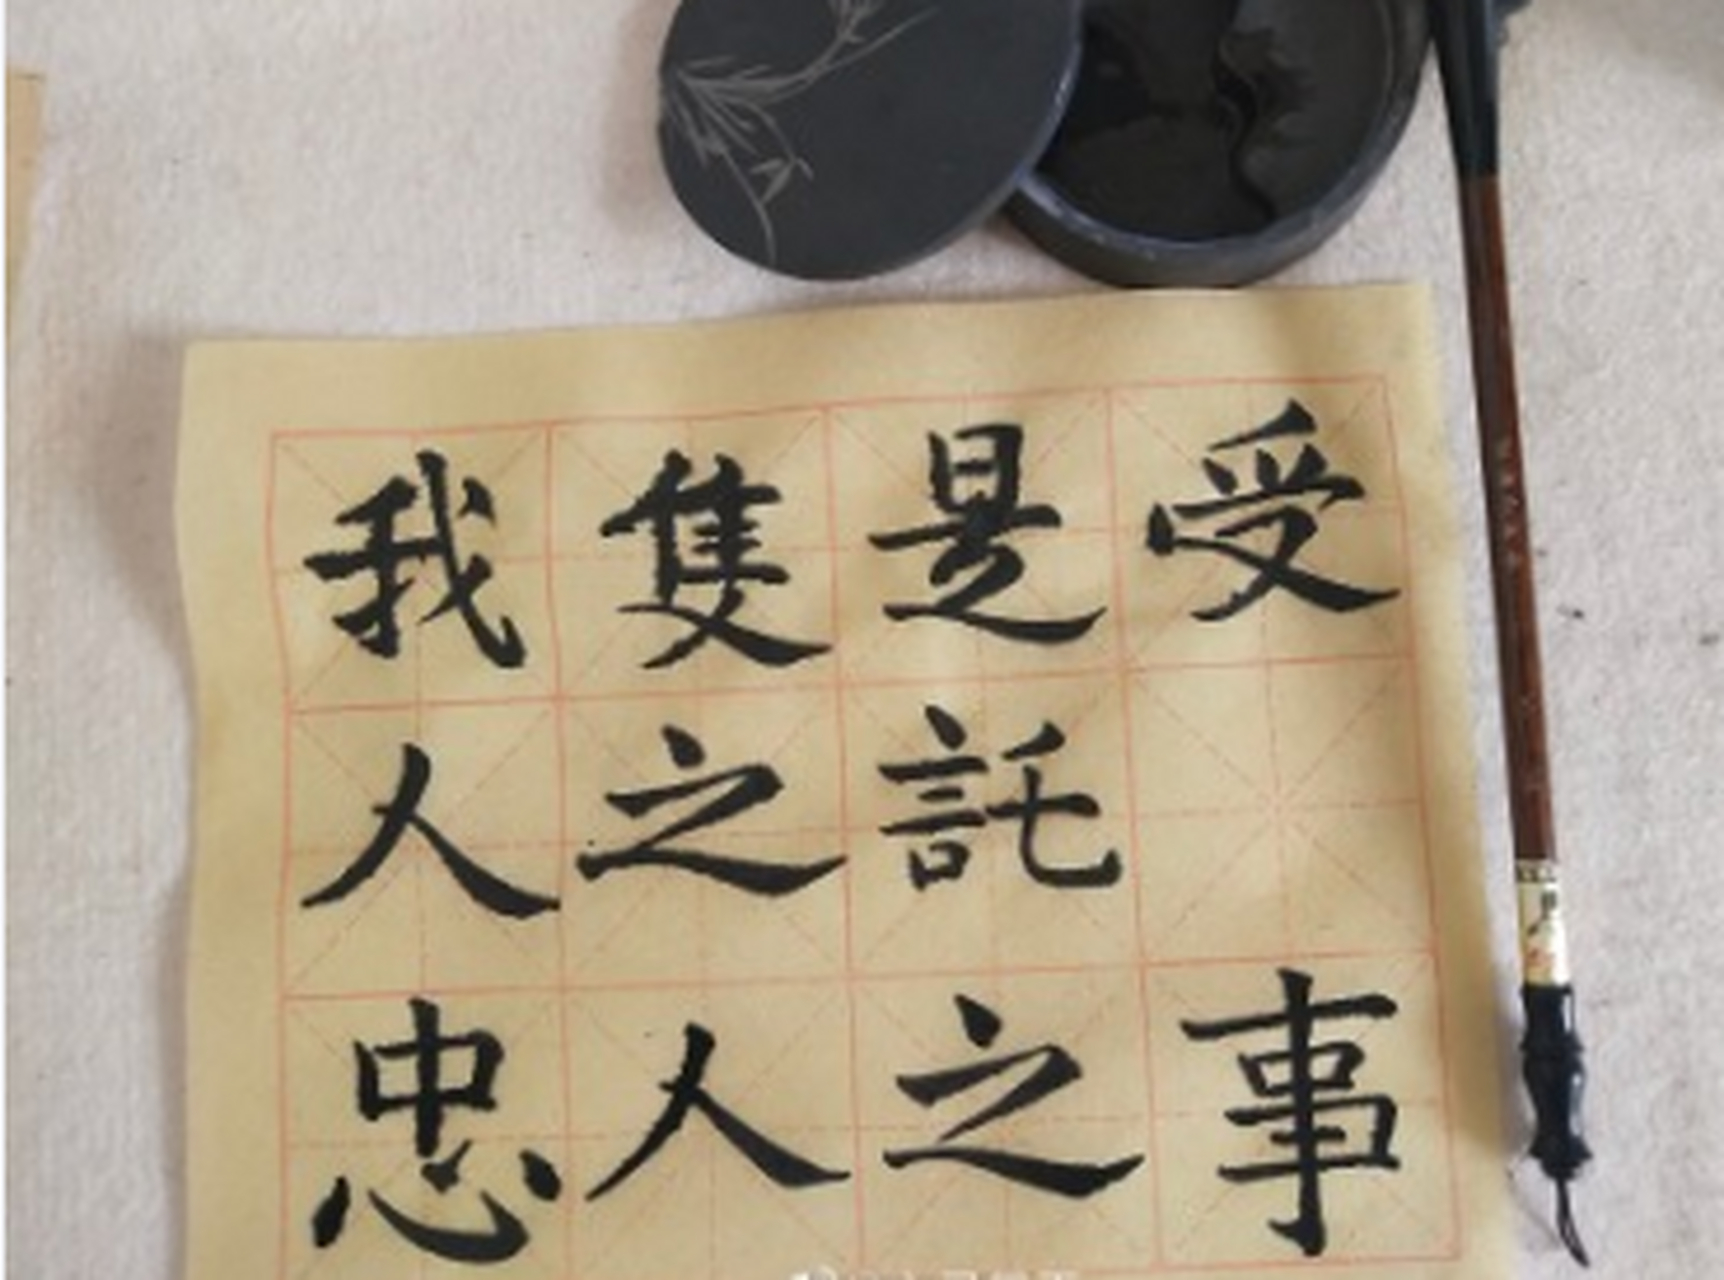 我隻是受
人之託
忠人之事